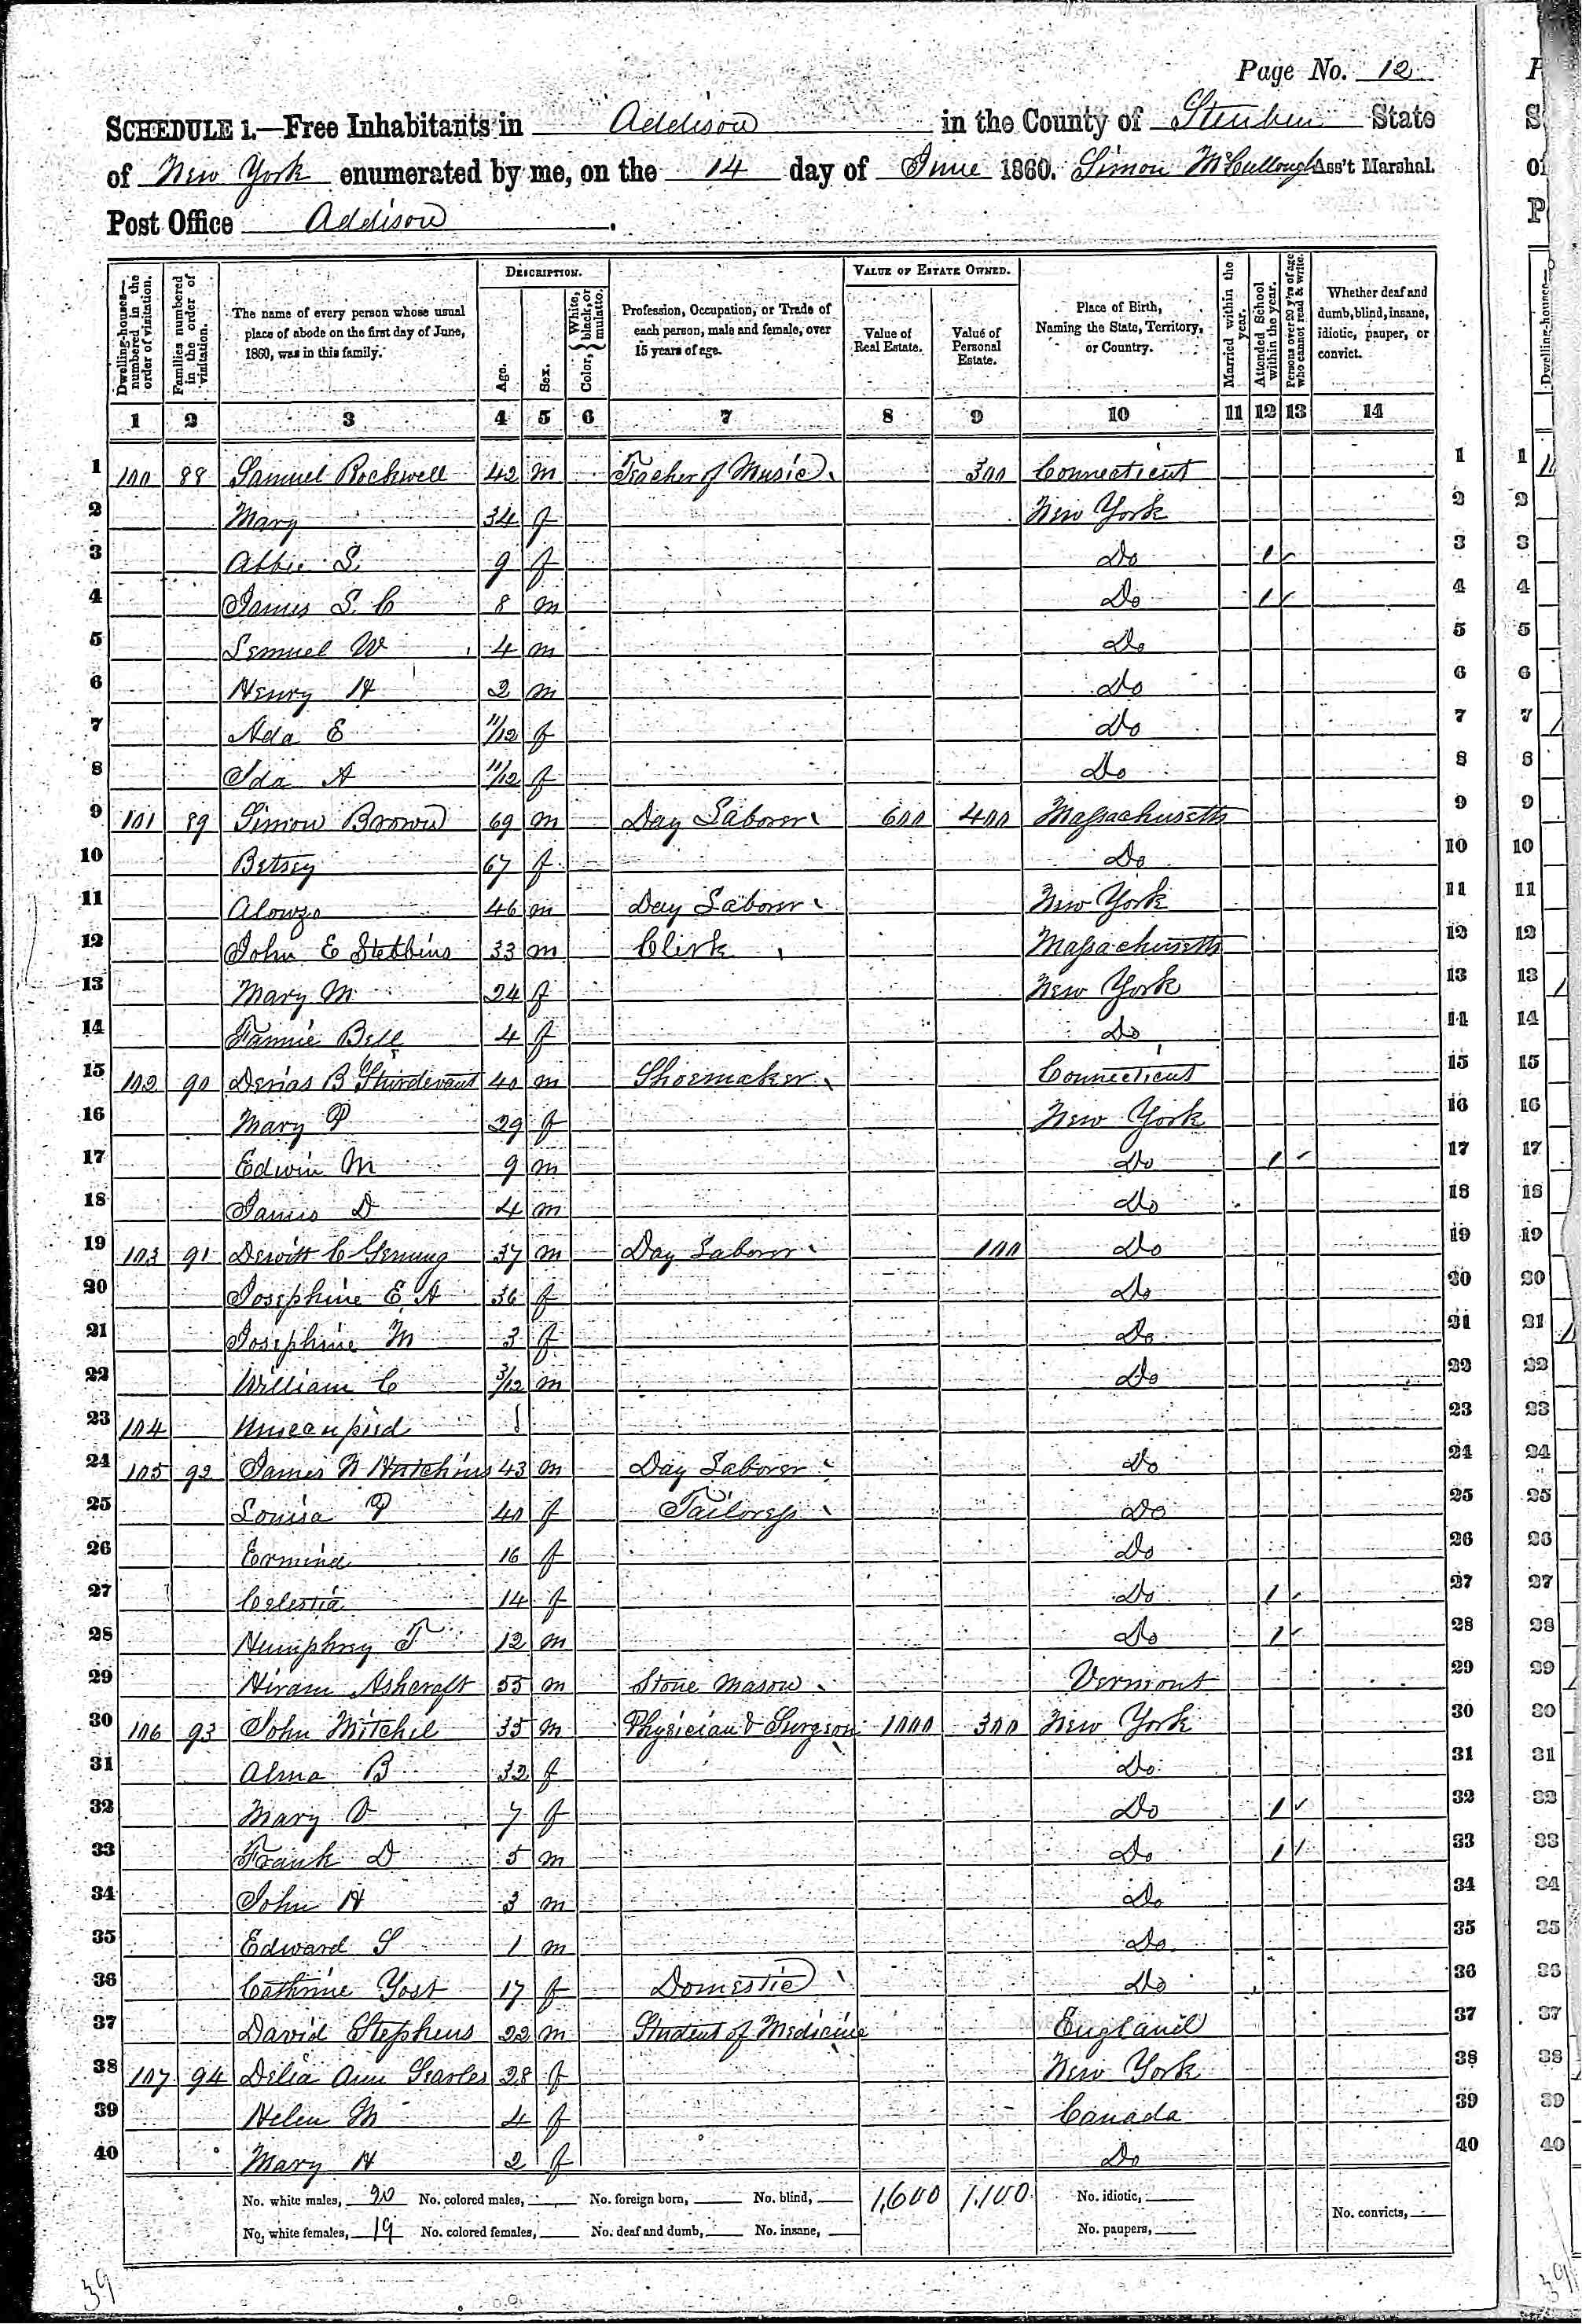 Page No. 12
SCHEDULE 1.—Free Inhabitants in Addison in the County of Steuben State
of New York enumerated by me, on the 14 day of June 1860. Simon McCullough Ass't Marshal.
Post Office Addison.
Dwelling-houses—numbered in the order of visitation.
Families numbered in the order of visitation.
The name of every person whose usual place of abode on the first day of June, 1860, was in this family.
DESCRIPTION.
Age.
Sex.
Color, {White, black, or mulatto.
Profession, Occupation, or Trade of each person, male and female, over 15 years of age.
VALUE OF ESTATE OWNED.
Value of Real Estate.
Value of Personal Estate.
Place of Birth, Naming the State, Territory, or Country.
Married within the year.
Attended School within the year.
Persons over 20 y'rs of age who cannot read & write.
Whether deaf and dumb, blind, insane, idiotic, pauper, or convict.
1 2 3 4 5 6 7 8 9 10 11 12 13 14
1 100 88 Samuel Rockwell 42 m Teacher of Music 300 Connecticut 1
2 Mary 34 f New York 2
3 Abbie S. 9 f Do / 3
4 James S. C 8 m Do / 4
5 Lemuel W 4 m Do 5
6 Henry H 2 m Do 6
7 Ada E 11/12 f Do 7
8 Ida A 11/12 f Do 8
9 101 89 Simon Brown 69 m Day Laborer 600 400 Massachusetts 9
10 Betsey 67 f Do 10
11 Alonzo 46 m Day Laborer New York 11
12 John E Stebbins 33 m Clerk Massachusetts 12
13 Mary M 24 f New York 13
14 Fannie Bell 4 f Do 14
15 102 90 B 40 m Shoemaker Connecticut 15
16 Mary P 29 f New York 16
17 Edwin M 9 m Do / 17
18 James D 4 m Do 18
19 103 91 Dewitt C Genung 37 m Day Laborer 100 Do 19
20 Josephine E A 36 f Do 20
21 Josephine M 3 f Do 21
22 William C 3/12 m Do 22
23 104 Unocupied 23
24 105 92 James N Hutchins 43 m Day Laborer Do 24
25 Louisa P 40 f Tailoress Do 25
26 Ermina 16 f Do 26
27 Celestia 14 f Do / 27
28 Humphrey T 12 m Do / 28
29 Hiram Ashcraft 55 m Stone Mason Vermont 29
30 106 93 John Mitchel 35 m Physician & Surgeon 1000 300 New York 30
31 Alma B 32 f Do 31
32 Mary V 7 f Do / 32
33 Frank D 5 m Do / 33
34 John H 3 m Do 34
35 Edward S 1 m Do 35
36 Cathrine Yost 17 f Domestic Do 36
37 David Stephens 22 m Student of Medicine England 37
38 107 94 Delia Ann Searles 28 f New York 38
39 Helen M 4 f Canada 39
40 Mary H 2 f Do 40
No. white males, 20 No. colored males, No. foreign born, No. blind, 1,600 1,100 No. idiotic,
No. white females, 19 No. colored females, No. deaf and dumb, No. insane, No. paupers, No. convicts,
39